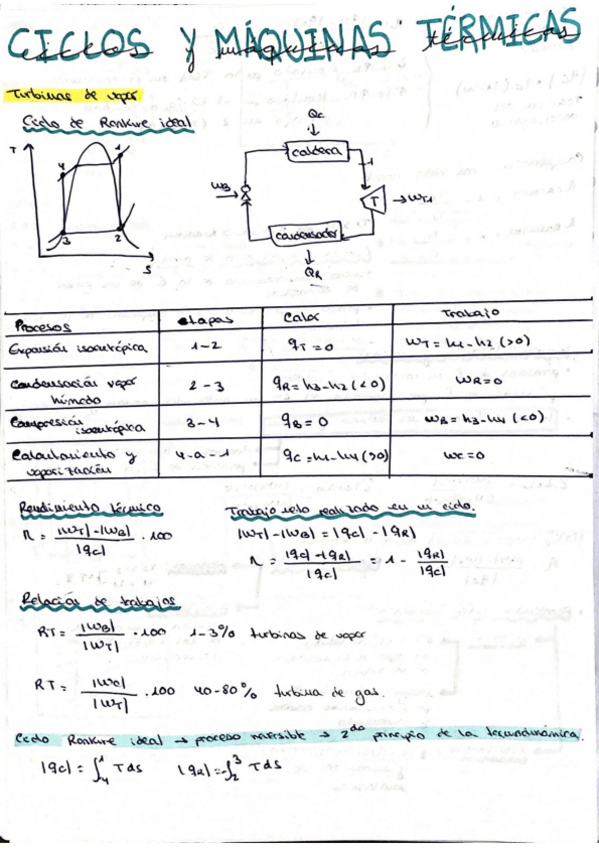 CICLOS Y MÁQUINAS TÉRMICAS
ciclos y máquinas térmicas
Turbinas de vapor
Ciclo de Rankine ideal
T
4
1
3
2
S
Qc
caldera
1
WB
T
WT
condensador
QR
Procesos etapas Calor Trabajo
Expansión isoentrópica 1-2 qT = 0 WT = h1-h2 (>0)
Condensación vapor húmedo 2-3 qR = h3-h2 (<0) WR = 0
Compresión isoentrópica 3-4 qB = 0 WB = h3-h4 (<0)
Calentamiento y vaporización 4-a-1 qC = h1-h4 (>0) WC = 0
Rendimiento térmico
η = |WT|-|WB| / |qc| · 100
Trabajo neto realizado en un ciclo.
|WT|-|WB| = |qc| - |qR|
η = |qc|-|qR| / |qc| = 1 - |qR| / |qc|
Relación de trabajos
RT = |WB| / |WT| · 100 1-3% turbinas de vapor
RT = |Wc| / |WT| · 100 40-80% turbina de gas.
Ciclo Rankine ideal → proceso reversible → 2do principio de la termodinámica.
|qc| = ∫₄¹ Tds |qR| = ∫₂³ Tds